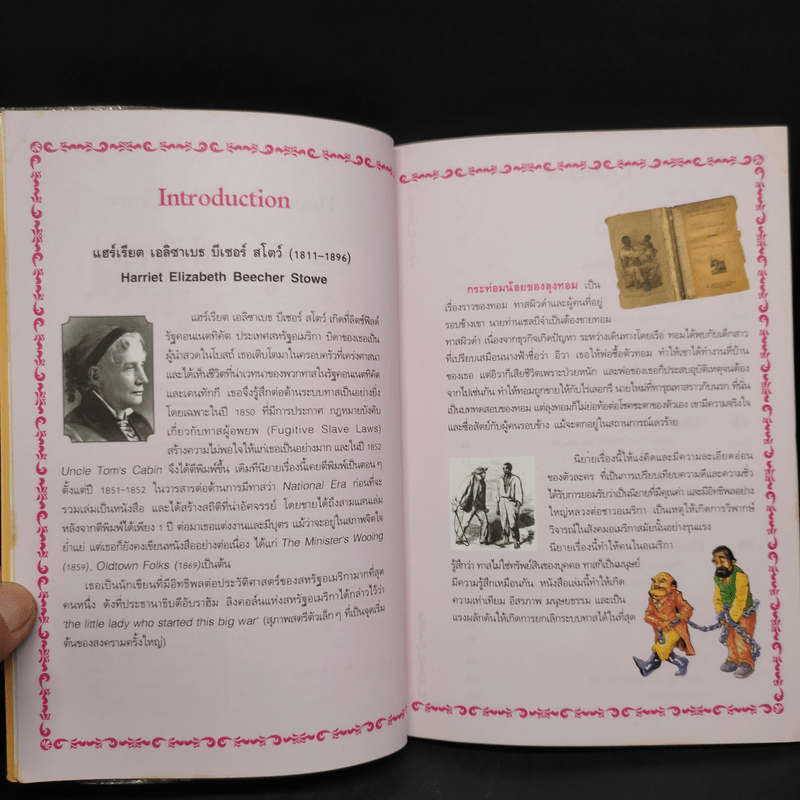 Introduction
แฮร์เรียต เอลิซาเบธ บีเชอร์ สโตว์ (1811-1896)
Harriet Elizabeth Beecher Stowe
แฮร์เรียต เอลิซาเบธ บีเชอร์ สโตว์ เกิดที่ลิตช์ฟิลด์
รัฐคอนเนตทิคัต ประเทศสหรัฐอเมริกา บิดาของเธอเป็น
ผู้นำสวดในโบสถ์ เธอเติบโตมาในครอบครัวที่เคร่งศาสนา
และได้เห็นชีวิตที่น่าเวทนาของพวกทาสในรัฐคอนเนตทิคัต
และเคนทักกี เธอจึงรู้สึกต่อต้านระบบทาสเป็นอย่างยิ่ง
โดยเฉพาะในปี 1850 ที่มีการประกาศ กฎหมายบังคับ
เกี่ยวกับทาสผู้อพยพ (Fugitive Slave Laws)
สร้างความไม่พอใจให้แก่เธอเป็นอย่างมาก และในปี 1852
Uncle Tom's Cabin จึงได้ตีพิมพ์ขึ้น เดิมทีนิยายเรื่องนี้เคยตีพิมพ์เป็นตอนๆ
ตั้งแต่ปี 1851-1852 ในวารสารต่อต้านการมีทาสว่า National Era ก่อนที่จะ
รวมเล่มเป็นหนังสือ และได้สร้างสถิติที่น่าอัศจรรย์ โดยขายได้ถึงสามแสนเล่ม
หลังจากตีพิมพ์ได้เพียง 1 ปี ต่อมาเธอแต่งงานและมีบุตร แม้ว่าจะอยู่ในสภาพจิตใจ
ย่ำแย่ แต่เธอก็ยังคงเขียนหนังสืออย่างต่อเนื่อง ได้แก่ The Minister's Wooing
(1859), Oldtown Folks (1869)เป็นต้น
เธอเป็นนักเขียนที่มีอิทธิพลต่อประวัติศาสตร์ของสหรัฐอเมริกามากที่สุด
คนหนึ่ง ดังที่ประธานาธิบดีอับราฮัม ลิงคอล์นแห่งสหรัฐอเมริกาได้กล่าวไว้ว่า
'the little lady who started this big war' (สุภาพสตรีตัวเล็กๆ ที่เป็นจุดเริ่ม
ต้นของสงครามครั้งใหญ่)
กระท่อมน้อยของลุงทอม เป็น
เรื่องราวของทอม ทาสผิวดำและผู้คนที่อยู่
รอบข้างเขา นายท่านเชลบีจำเป็นต้องขายทอม
ทาสผิวดำ เนื่องจากธุรกิจเกิดปัญหา ระหว่างเดินทางโดยเรือ ทอมได้พบกับเด็กสาว
ที่เปรียบเสมือนนางฟ้าชื่อว่า อิวา เธอให้พ่อซื้อตัวทอม ทำให้เขาได้ทำงานที่บ้าน
ของเธอ แต่อิวาก็เสียชีวิตเพราะป่วยหนัก และพ่อของเธอก็ประสบอุบัติเหตุจนต้อง
จากไปเช่นกัน ทำให้ทอมถูกขายให้กับไร่เลอกรี นายใหม่ที่ทารุณทาสราวกับนรก ที่นั่น
เป็นบททดสอบของทอม แต่ลุงทอมก็ไม่ย่อท้อต่อโชคชะตาของตัวเอง เขามีความจริงใจ
และซื่อสัตย์กับผู้คนรอบข้าง แม้จะตกอยู่ในสถานการณ์เลวร้าย
นิยายเรื่องนี้ให้แง่คิดและมีความละเอียดอ่อน
ของตัวละคร ที่เป็นการเปรียบเทียบความดีและความชั่ว
ได้รับการยอมรับว่าเป็นนิยายที่มีคุณค่า และมีอิทธิพลอย่าง
ใหญ่หลวงต่อชาวอเมริกา เป็นเหตุให้เกิดการวิพากษ์
วิจารณ์ในสังคมอเมริกาสมัยนั้นอย่างรุนแรง
นิยายเรื่องนี้ทำให้คนในอเมริกา
รู้สึกว่า ทาสไม่ใช่ทรัพย์สินของบุคคล ทาสก็เป็นมนุษย์
มีความรู้สึกเหมือนกัน หนังสือเล่มนี้ทำให้เกิด
ความเท่าเทียม อิสรภาพ มนุษยธรรม และเป็น
แรงผลักดันให้เกิดการยกเลิกระบบทาสได้ในที่สุด